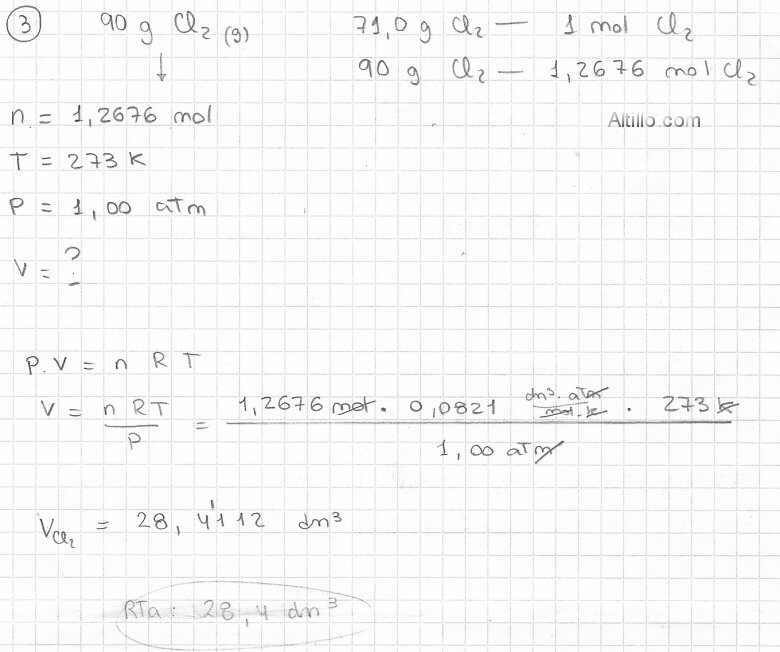 3 90 g Cl₂ (g) 71,0 g Cl₂ — 1 mol Cl₂
90 g Cl₂ — 1,2676 mol Cl₂
n = 1,2676 mol
Altillo.com
T = 273 K
P = 1,00 atm
V = ?
P.V = n R T
V = n RT / P = 1,2676 mol . 0,0821 dm³.atm / mol.K . 273 K / 1,00 atm
V Cl₂ = 28,4112 dm³
RTa: 28,4 dm³